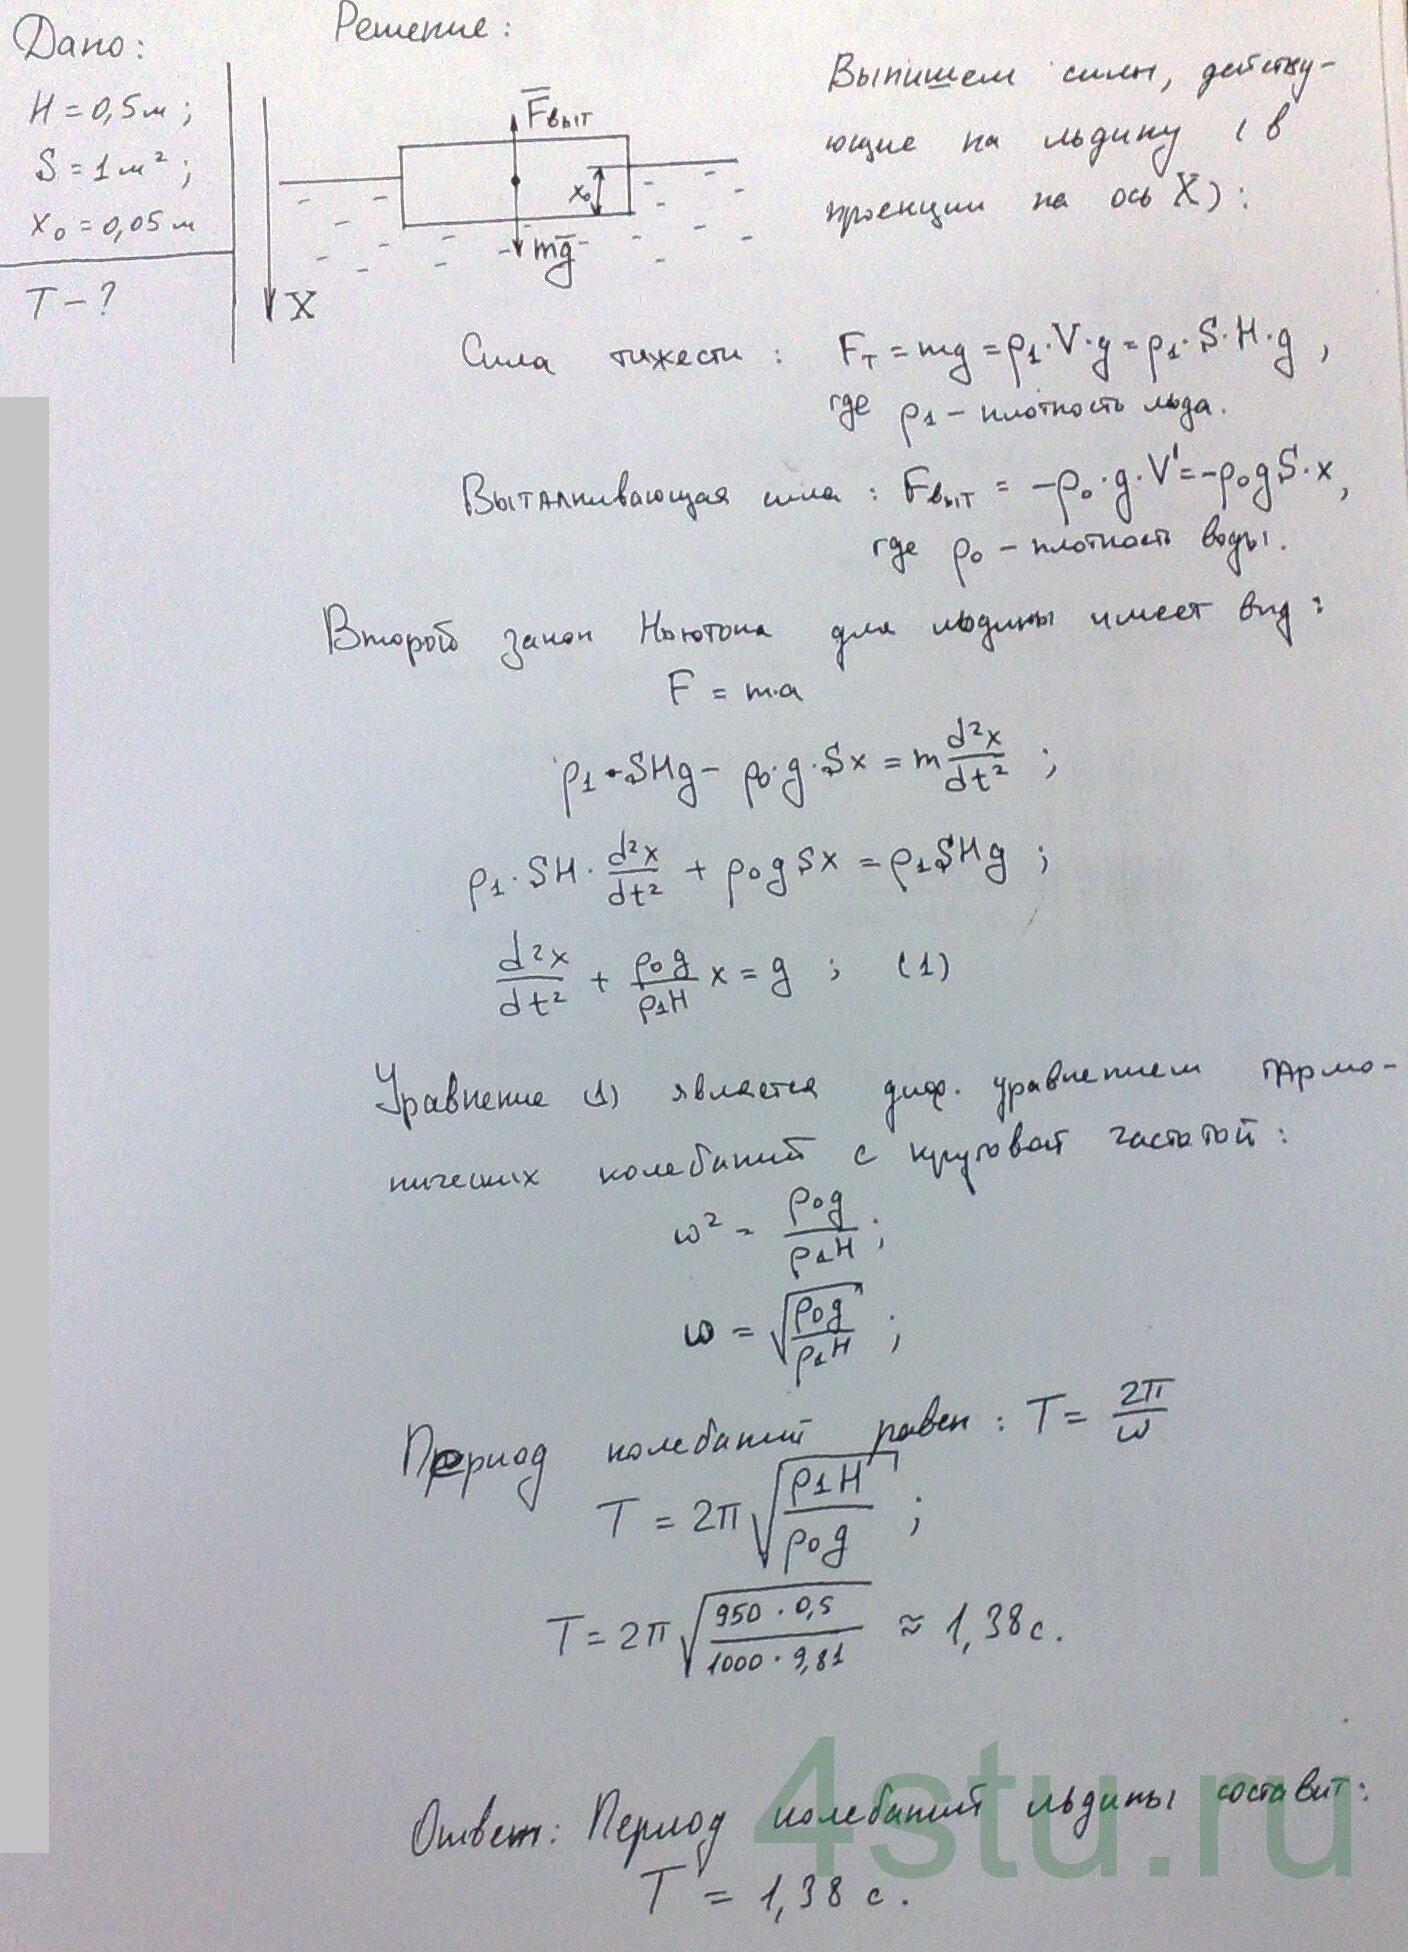 Дано:
H = 0,5 м ;
S = 1 м² ;
x₀ = 0,05 м
T – ?
Решение:
F̅выт
x₀
mg̅
X
Выпишем силы, действу-
ющие на льдину (в
проекции на ось X) :
Сила тяжести : Fт = mg = ρ₁·V·g = ρ₁·S·H·g ,
где ρ₁ – плотность льда.
Выталкивающая сила : Fвыт = –ρ₀·g·V' = –ρ₀gS·x,
где ρ₀ – плотность воды.
Второй закон Ньютона для льдины имеет вид :
F = m·a
ρ₁·SHg – ρ₀·g·Sx = m d²x/dt² ;
ρ₁·SH· d²x/dt² + ρ₀gSx = ρ₁SHg ;
d²x/dt² + ρ₀g/ρ₁H x = g ; (1)
Уравнение (1) является диф. уравнением гармо-
нических колебаний с круговой частотой :
ω² = ρ₀g/ρ₁H ;
ω = √(ρ₀g/ρ₁H) ;
Период колебаний равен : T = 2π/ω
T = 2π√(ρ₁H/ρ₀g) ;
T = 2π√(950 · 0,5/1000 · 9,81) ≈ 1,38 с.
Ответ: Период колебаний льдины составит :
T = 1,38 с.
4stu.ru